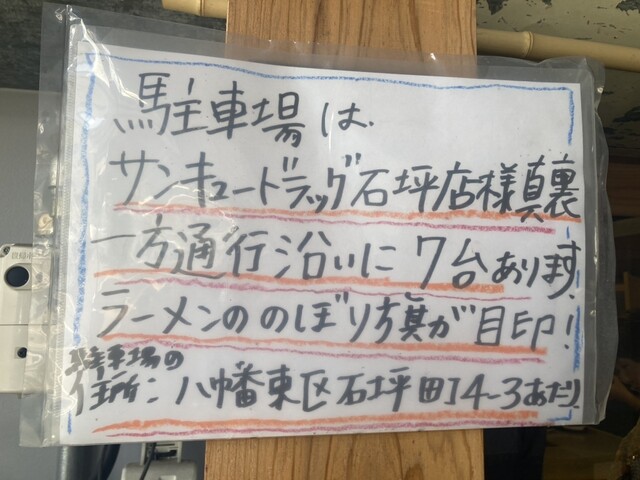 駐車場は
サンキュードラッグ石坪店様真裏
一方通行沿いに7台あります
ラーメンののぼり旗が目印!
駐車場の
住所:八幡東区石坪町4-3あたり